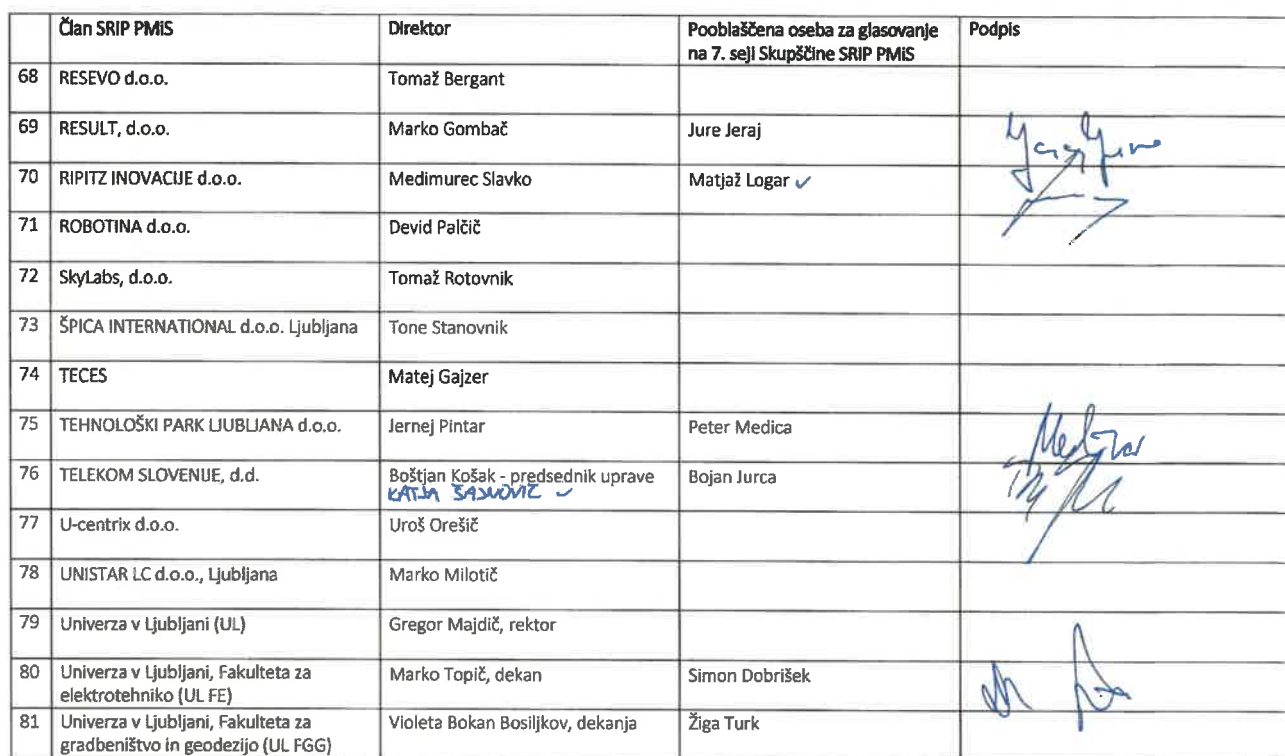 Član SRIP PMiS Direktor Pooblaščena oseba za glasovanje Podpis
na 7. seji Skupščine SRIP PMiS
68 RESEVO d.o.o. Tomaž Bergant
69 RESULT, d.o.o. Marko Gombač Jure Jeraj
70 RIPITZ INOVACIJE d.o.o. Medimurec Slavko Matjaž Logar ✓
71 ROBOTINA d.o.o. Devid Palčič
72 SkyLabs, d.o.o. Tomaž Rotovnik
73 ŠPICA INTERNATIONAL d.o.o. Ljubljana Tone Stanovnik
74 TECES Matej Gajzer
75 TEHNOLOŠKI PARK LJUBLJANA d.o.o. Jernej Pintar Peter Medica
76 TELEKOM SLOVENIJE, d.d. Boštjan Košak - predsednik uprave Bojan Jurca
KATJA ✓
77 U-centrix d.o.o. Uroš Orešič
78 UNISTAR LC d.o.o., Ljubljana Marko Milotič
79 Univerza v Ljubljani (UL) Gregor Majdič, rektor
80 Univerza v Ljubljani, Fakulteta za Marko Topič, dekan Simon Dobrišek
elektrotehniko (UL FE)
81 Univerza v Ljubljani, Fakulteta za Violeta Bokan Bosiljkov, dekanja Žiga Turk
gradbeništvo in geodezijo (UL FGG)